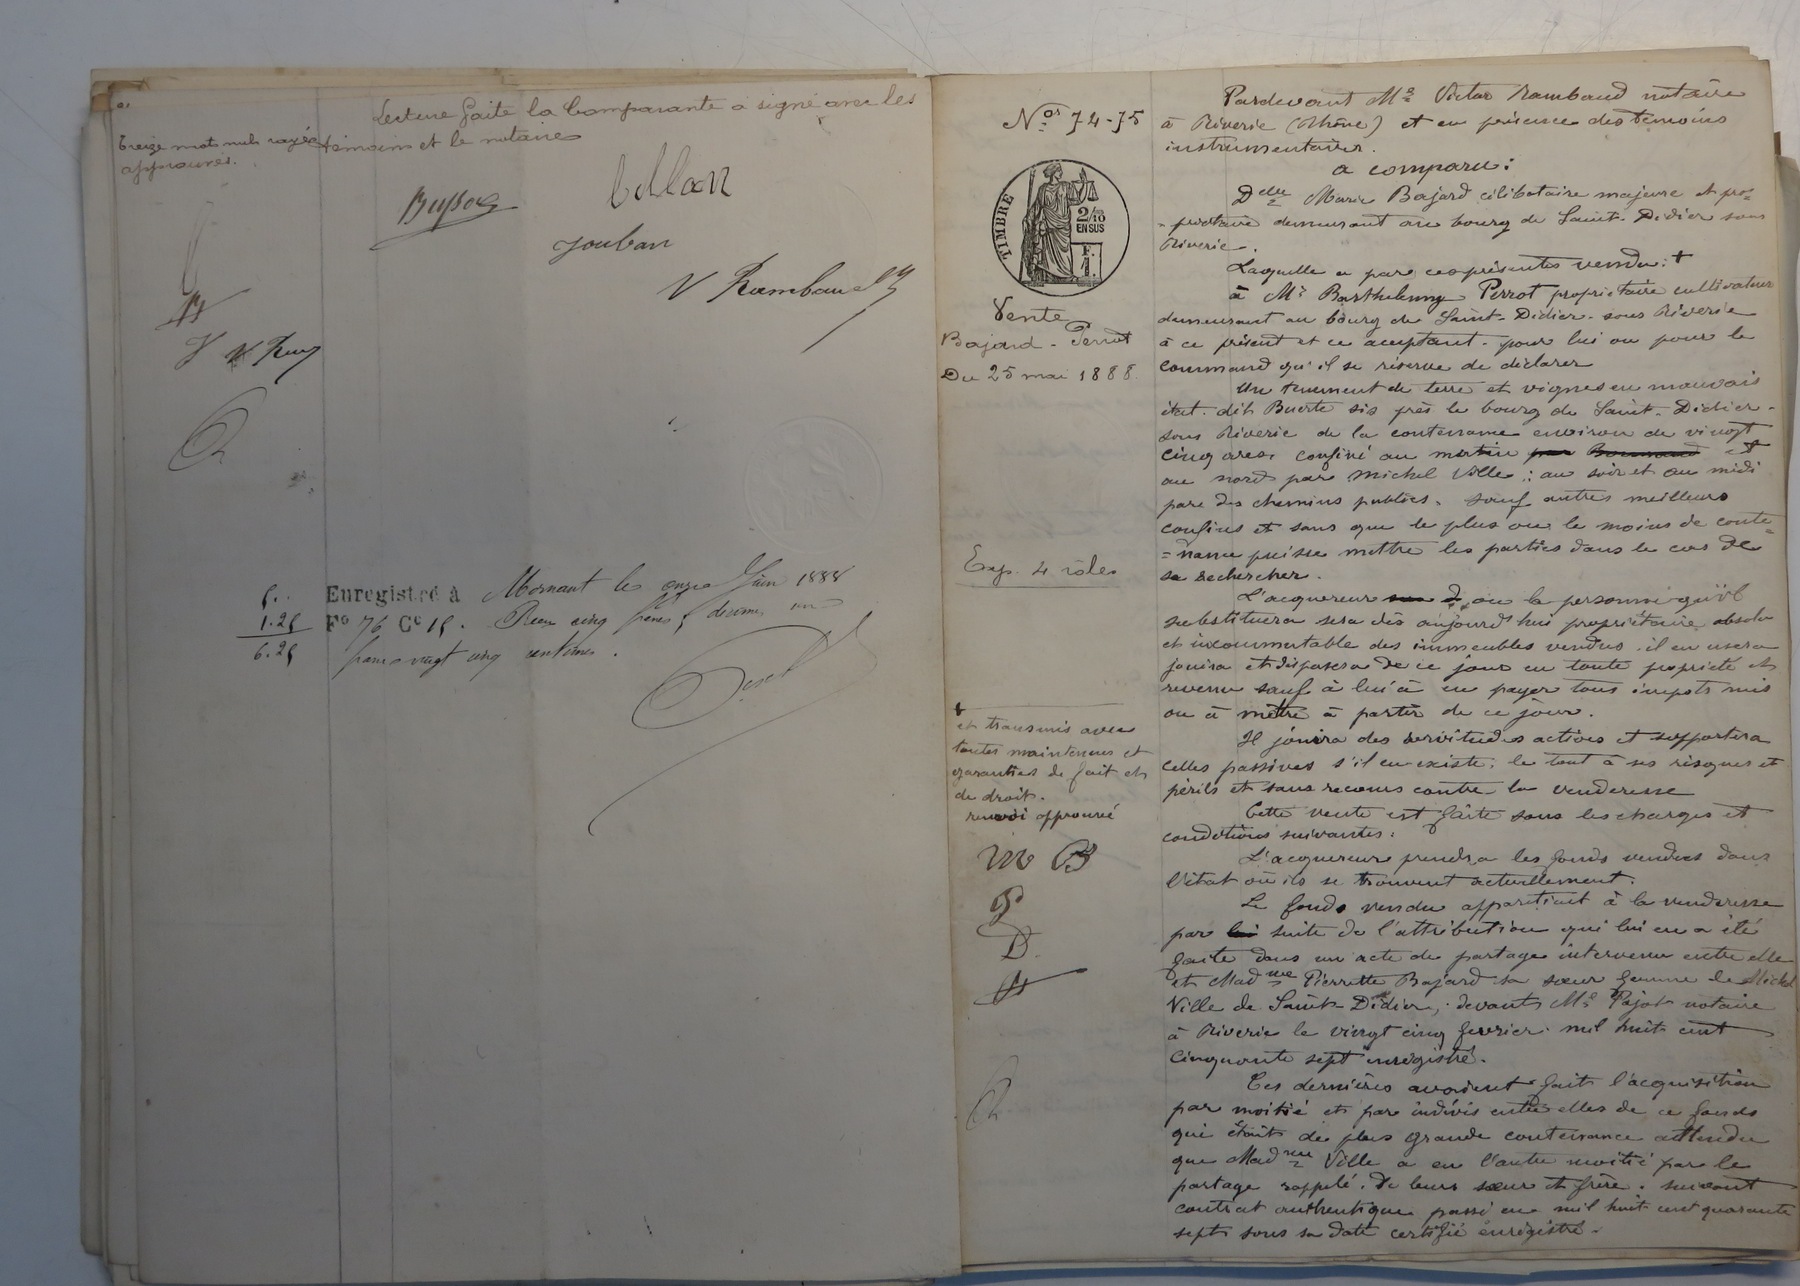 Lecture faite la Comparante a signé avec les
treize mots nuls rayés témoins et le notaire
approuvés.
Collan
Bussoz
Jouban
V Rambaud
Enregistré à Mornant le onze Juin 1888
Fo 76 Ce 15. Reçu cinq francs, décimes un
franc vingt cinq centimes.
5..
1.25
6.25
Nos 74-75
TIMBRE
2/10
EN SUS
F.
1.
Vente
Bajard - Perrot
Du 25 mai 1888
Exp. 4 rôles
et transmis avec
toutes maintenues et
garanties de fait et
de droit.
renvoi approuvé
M B
Pardevant Me Victor Rambaud notaire
à Riverie (Rhône) et en présence des témoins
instrumentaires.
a comparu:
Delle Marie Bajard célibataire majeure et pro-
-priétaire demeurant au bourg de Saint-Didier sous
Riverie.
Laquelle a par ces présentes vendu: +
à Mr Barthelemy Perrot propriétaire cultivateur
demeurant au bourg de Saint-Didier-sous Riverie
à ce présent et ce acceptant. pour lui ou pour le
command qu'il se réserve de déclarer
Un tenement de terre et vignes en mauvais
état. dit Buerte sis près le bourg de Saint-Didier-
sous Riverie de la contenance environ de vingt
cinq ares. confiné au matin par et
au nord par Michel Ville; au soir et au midi
par des chemins publics. sauf autres meilleurs
confins et sans que le plus ou le moins de conte=
=nance puisse mettre les parties dans le cas de
se rechercher.
L'acquereur ou la personne qu'il
substituera sera dès aujourd'hui propriétaire absolu
et incommutable des immeubles vendus. il en usera
jouira et disposera de ce jour en toute propriété et
revenu sauf à lui à en payer tous impots mis
ou à mettre à partir de ce jour.
Il jouira des servitudes actives et supportera
celles passives s'il en existe; le tout à ses risques et
périls et sans recours contre la venderesse
Cette vente est faite sous les charges et
conditions suivantes:
L'acquereur prendra les fonds vendus dans
l'état où ils se trouvent actuellement.
Le fonds vendu appartient à la venderesse
par lui suite de l'attribution qui lui en a été
faite dans un acte de partage intervenu entre elle
et Madme Pierrette Bajard sa sœur femme de Michel
Ville de Saint-Didier, devant Me Pajot notaire
à Riverie le vingt cinq fevrier mil huit cent
cinquante sept enregistré.
Ces dernières avaient fait l'acquisition
par moitié et par indivis entre elles de ce fonds
qui était de plus grande contenance attendu
que Madme Ville a eu l'autre moitié par le
partage rappelé. De leurs sœur et frère. suivant
contrat authentique passé en mil huit cent quarante
sept sous sa date certifié enregistré.